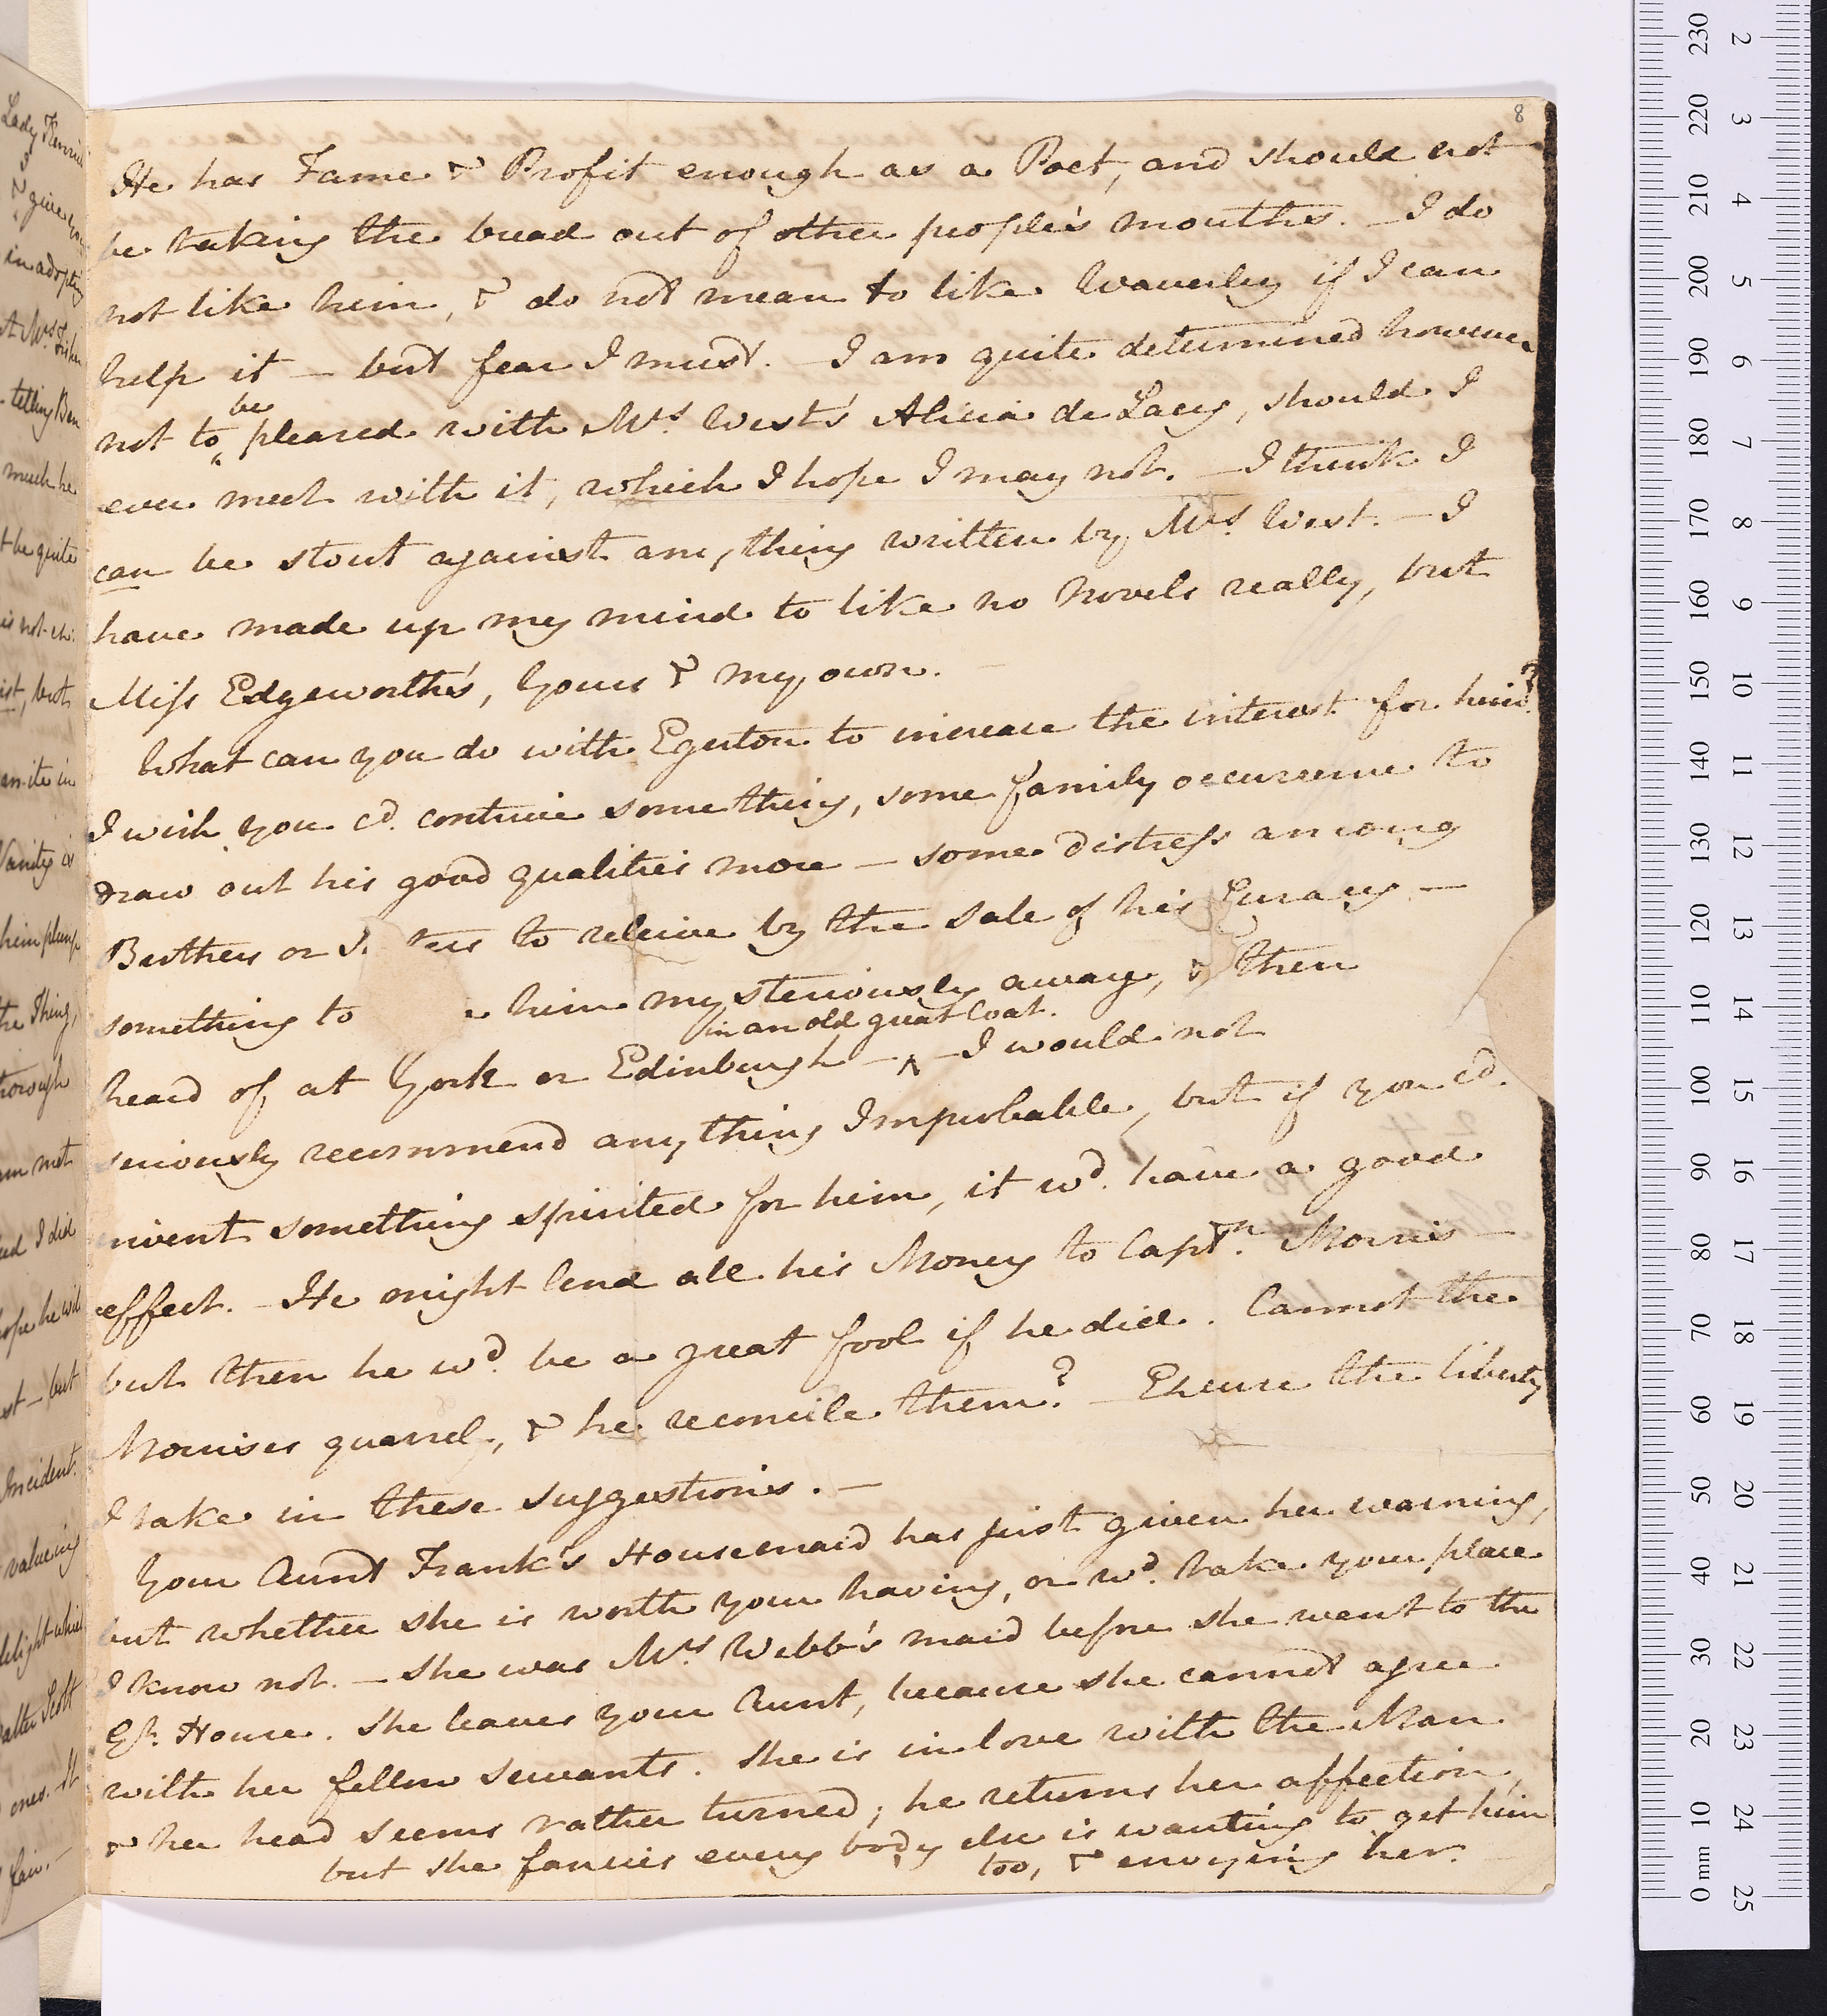 8
He has Fame & Profit enough as a Poet, and should not
be taking the bread out of other people's mouths. — I do
not like him, & do not mean to like Waverley if I can
help it — but fear I must. — I am quite determined however
not to be pleased with Mrs. West's Alicia de Lacy, should I
ever meet with it, which I hope I may not. — I think I
can be stout against any thing written by Mrs. West. — I
have made up my mind to like no Novels really, but
Miss Edgeworth's, Yours & my own. —
What can you do with Egerton to increase the interest for him?
I wish you cd. contrive something, some family occurrence to
draw out his good qualities more — some distress among
Brothers or S ters to releive by the sale of his Curacy —
something to him mysteriously away, & then
heard of at York or Edinburgh — in an old great Coat. — I would not
seriously recommend any thing Improbable, but if you cd.
invent something spirited for him, it wd. have a good
effect. — He might lend all his Money to Captn. Morris —
but then he wd. be a great fool if he did. Cannot the
Morrises quarrel, & he reconcile them? — Excuse the liberty
I take in these suggestions. —
Your Aunt Frank's Housemaid has just given her warning,
but whether she is worth your having, or wd. take your place
I know not. — She was Mrs. Webb's maid before she went to the
Gt. House. She leaves your Aunt, because she cannot agree
with her fellow servants. She is in love with the Man
& her head seems rather turned; he returns her affection,
but she fancies every body else is wanting to get him
too, & envying her.
Lady
& give you
in adopting
At Mrs. Fisher
telling Ben
much he
t be quite
is not
ist, but
Vanity is
him plump
the Thing,
thorough
am not
I did
hope he will
st — but
Incident.
valueing
delight which
Walter Scott
ones. It
fair. —
230
220
210
200
190
180
170
160
150
140
130
120
110
100
90
80
70
60
50
40
30
20
10
0 mm
2
3
4
5
6
7
8
9
10
11
12
13
14
15
16
17
18
19
20
21
22
23
24
25